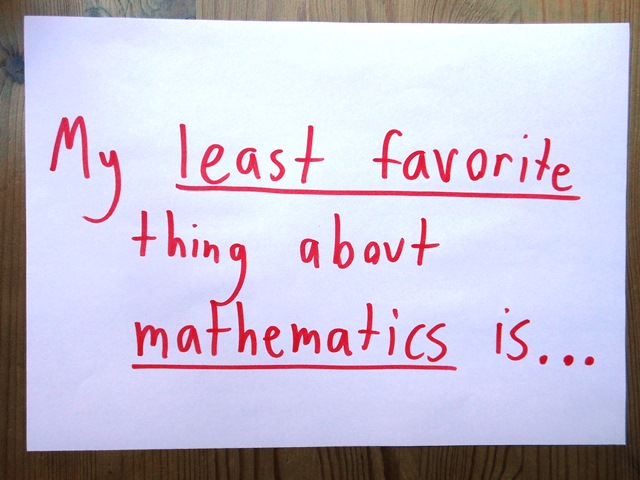 My least favorite
thing about
mathematics is...